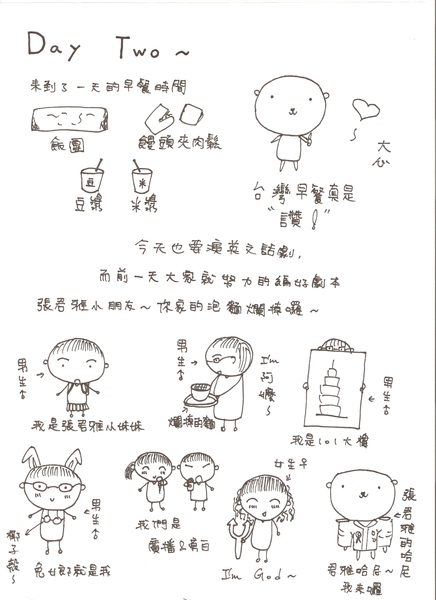 Day Two ~
來到了一天的早餐時間
飯團
饅頭夾肉鬆
大心
豆
米
豆漿
米漿
台灣早餐真是
“讚!”
今天也要演英文話劇,
而前一天大家就努力的編好劇本
張君雅小朋友~你家的泡麵爛掉囉~
男生
我是張君雅小妹妹
I'm 阿嬤~
男生
爛掉的麵
男生
我是101大樓
男生
椰子殼~
兔女郎就是我
我們是
廣播&旁白
女生
I'm God~
張君雅的哈尼
君雅哈尼~
我來囉